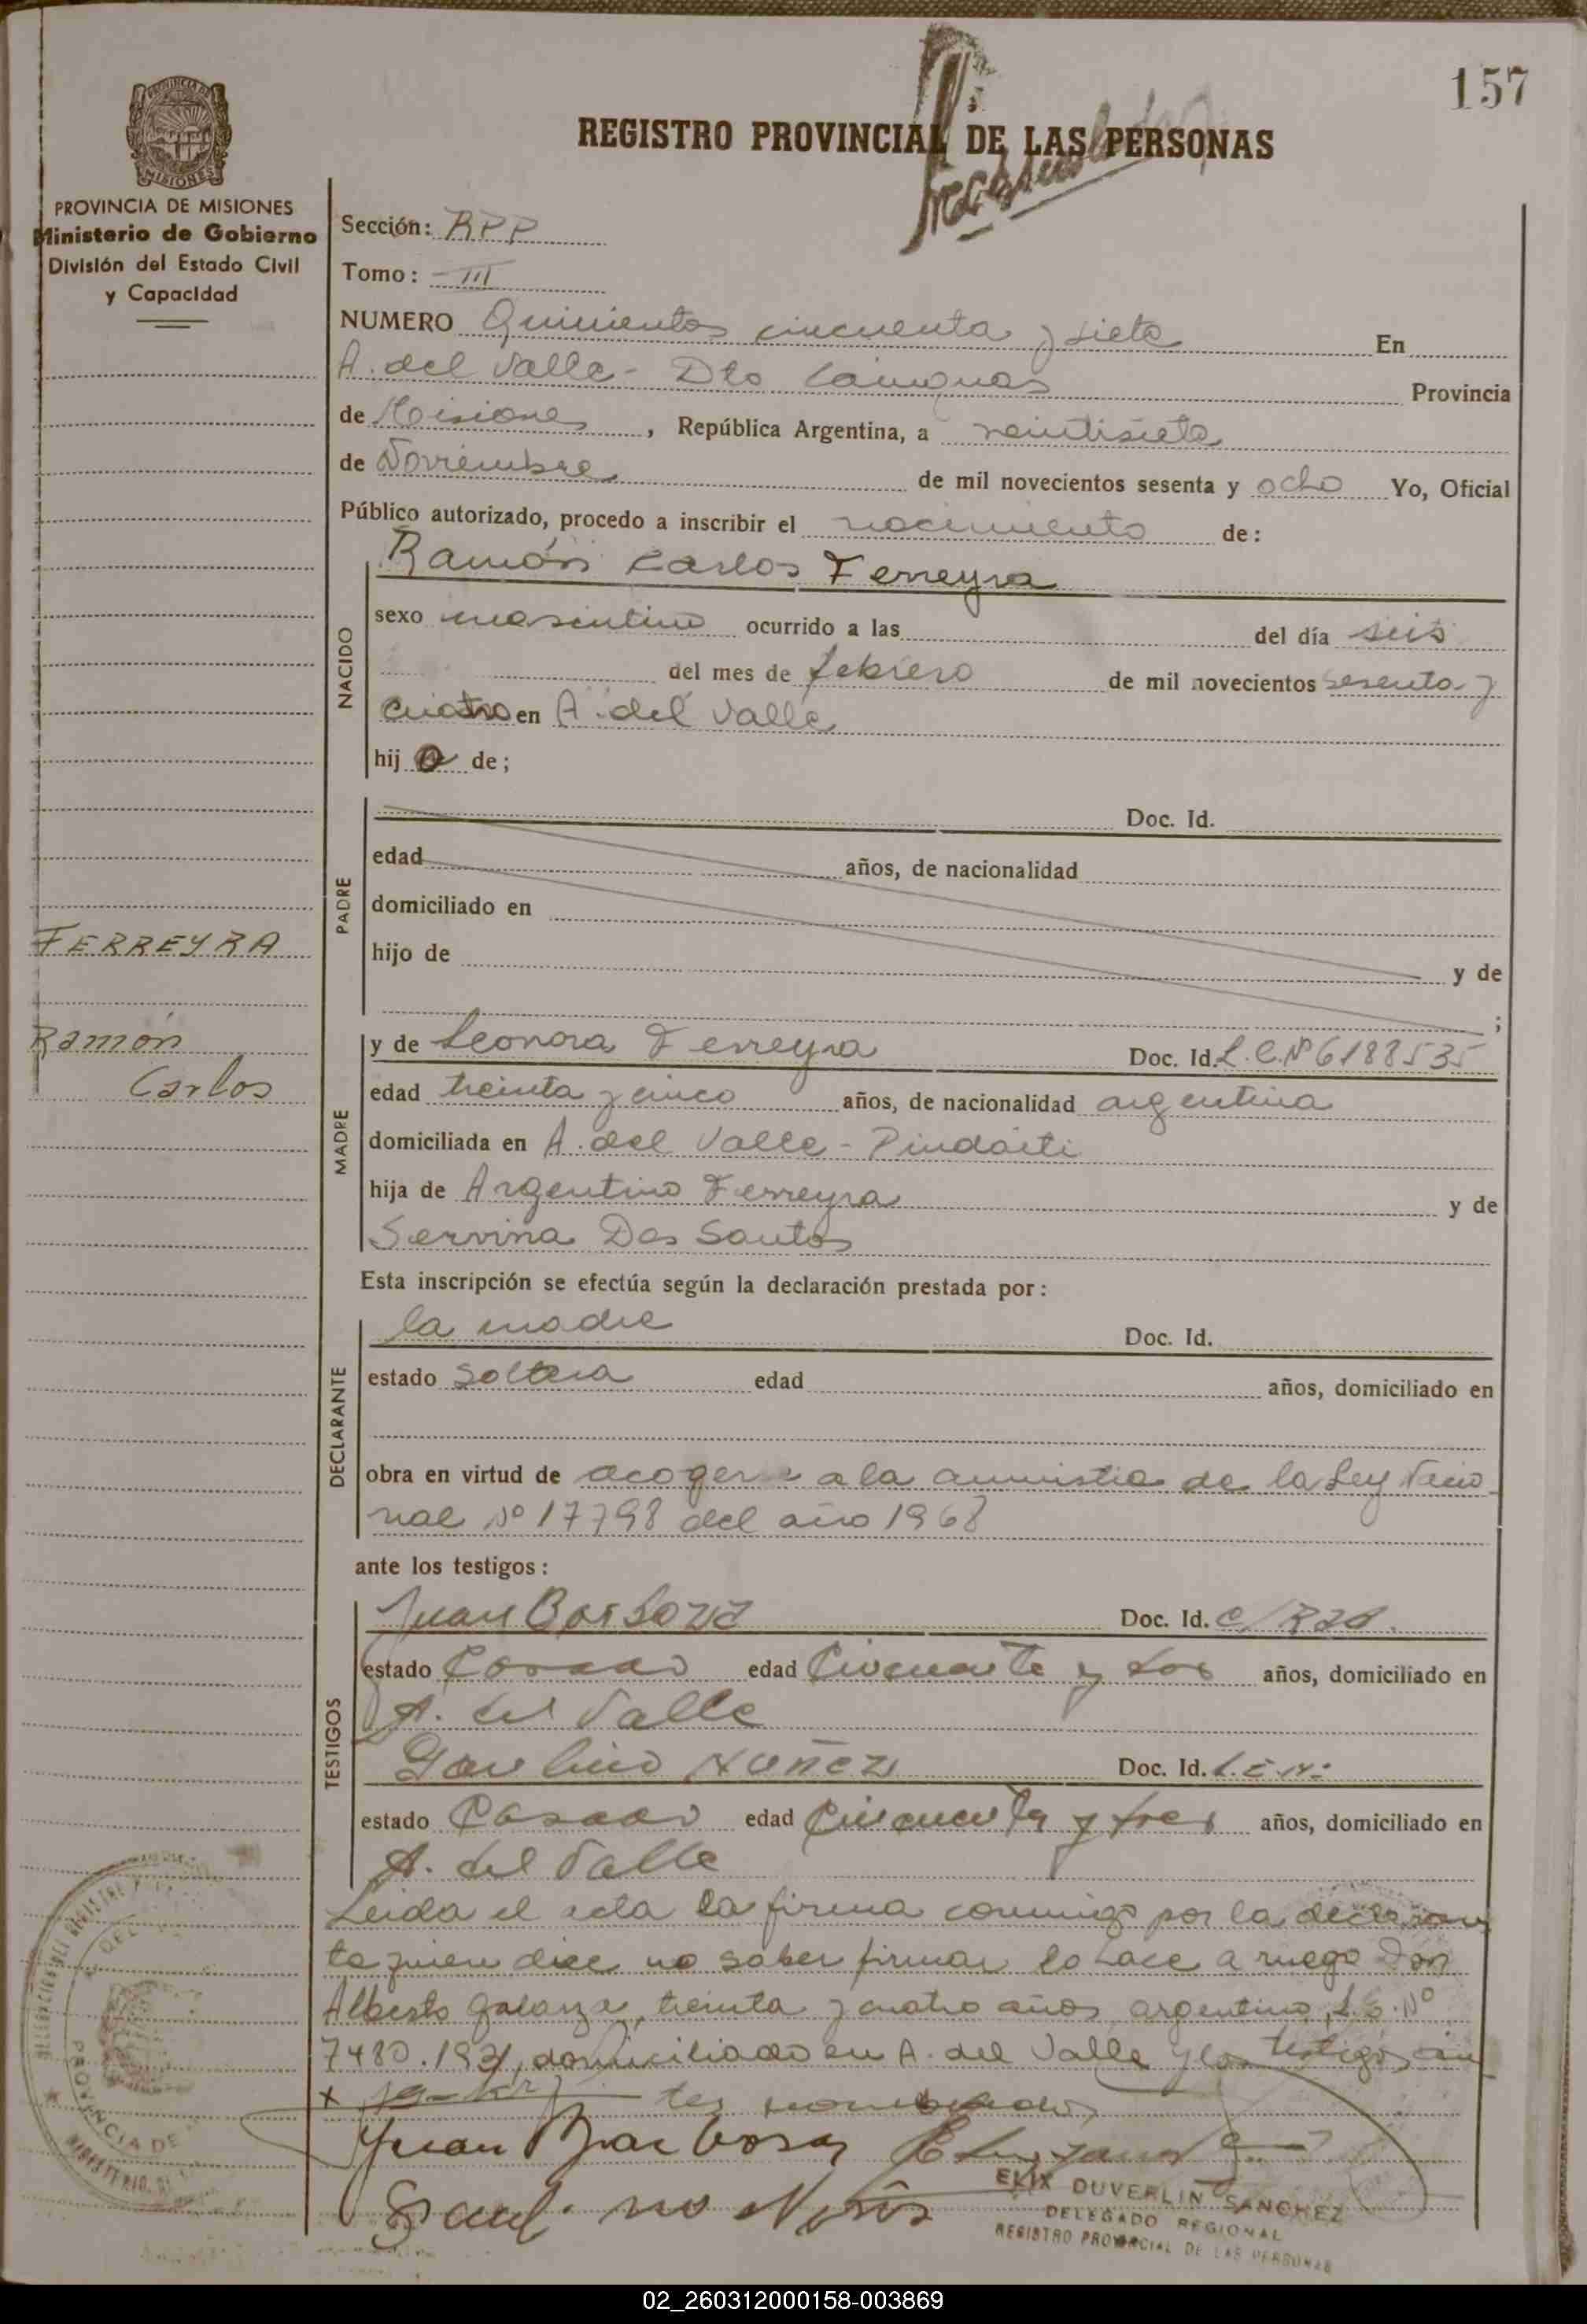 157
REGISTRO PROVINCIAL DE LAS PERSONAS
PROVINCIA DE MISIONES
Ministerio de Gobierno
División del Estado Civil
y Capacidad
Sección: RPP
Tomo: - III
NUMERO Quinientos cincuenta y siete En
A. del Valle - Dto Cainguas Provincia
de Misiones, República Argentina, a veintisiete
de Noviembre de mil novecientos sesenta y ocho Yo, Oficial
Público autorizado, procedo a inscribir el nacimiento de:
Ramón Carlos Ferreyra
NACIDO
sexo masculino ocurrido a las del día seis
del mes de febrero de mil novecientos sesenta y
cuatro en A. del Valle
hij o de;
PADRE
Doc. Id.
edad años, de nacionalidad
domiciliado en
hijo de y de
;
FERREYRA
Ramón
Carlos
MADRE
y de Leonora Ferreyra Doc. Id. L.C. Nº 6188535
edad treinta y cinco años, de nacionalidad argentina
domiciliada en A. del Valle - Pindaiti
hija de Argentino Ferreyra y de
Servina Dos Santos
Esta inscripción se efectúa según la declaración prestada por:
DECLARANTE
la madre Doc. Id.
estado soltera edad años, domiciliado en
obra en virtud de acogerse a la amnistia de la Ley Nacio
nal Nº 17798 del año 1968
ante los testigos:
TESTIGOS
Juan Barboza Doc. Id.
estado Casado edad Cincuenta y dos años, domiciliado en
A. del Valle
Núñez Doc. Id. L.E.Nº
estado Casado edad Cincuenta y tres años, domiciliado en
A. del Valle
Leida el acta la firma conmigo por la declaran
te quien dice no saber firmar lo hace a ruego Don
Alberto treinta y cuatro años argentino, L.E. Nº
7480.192, domiciliado en A. del Valle y los testigos an
tes nombrados
Juan Barboza
ELIX DUVERLIN SANCHEZ
DELEGADO REGIONAL
REGISTRO PROVINCIAL DE LAS PERSONAS
PROVINCIA DE
02_260312000158-003869